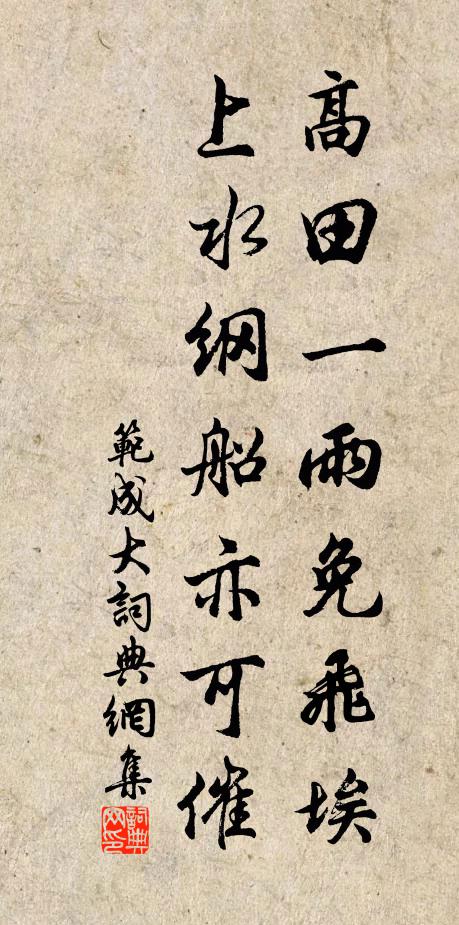 高田一雨免飛埃
上水綱船亦可催
範成大詞典網集
詞典網印